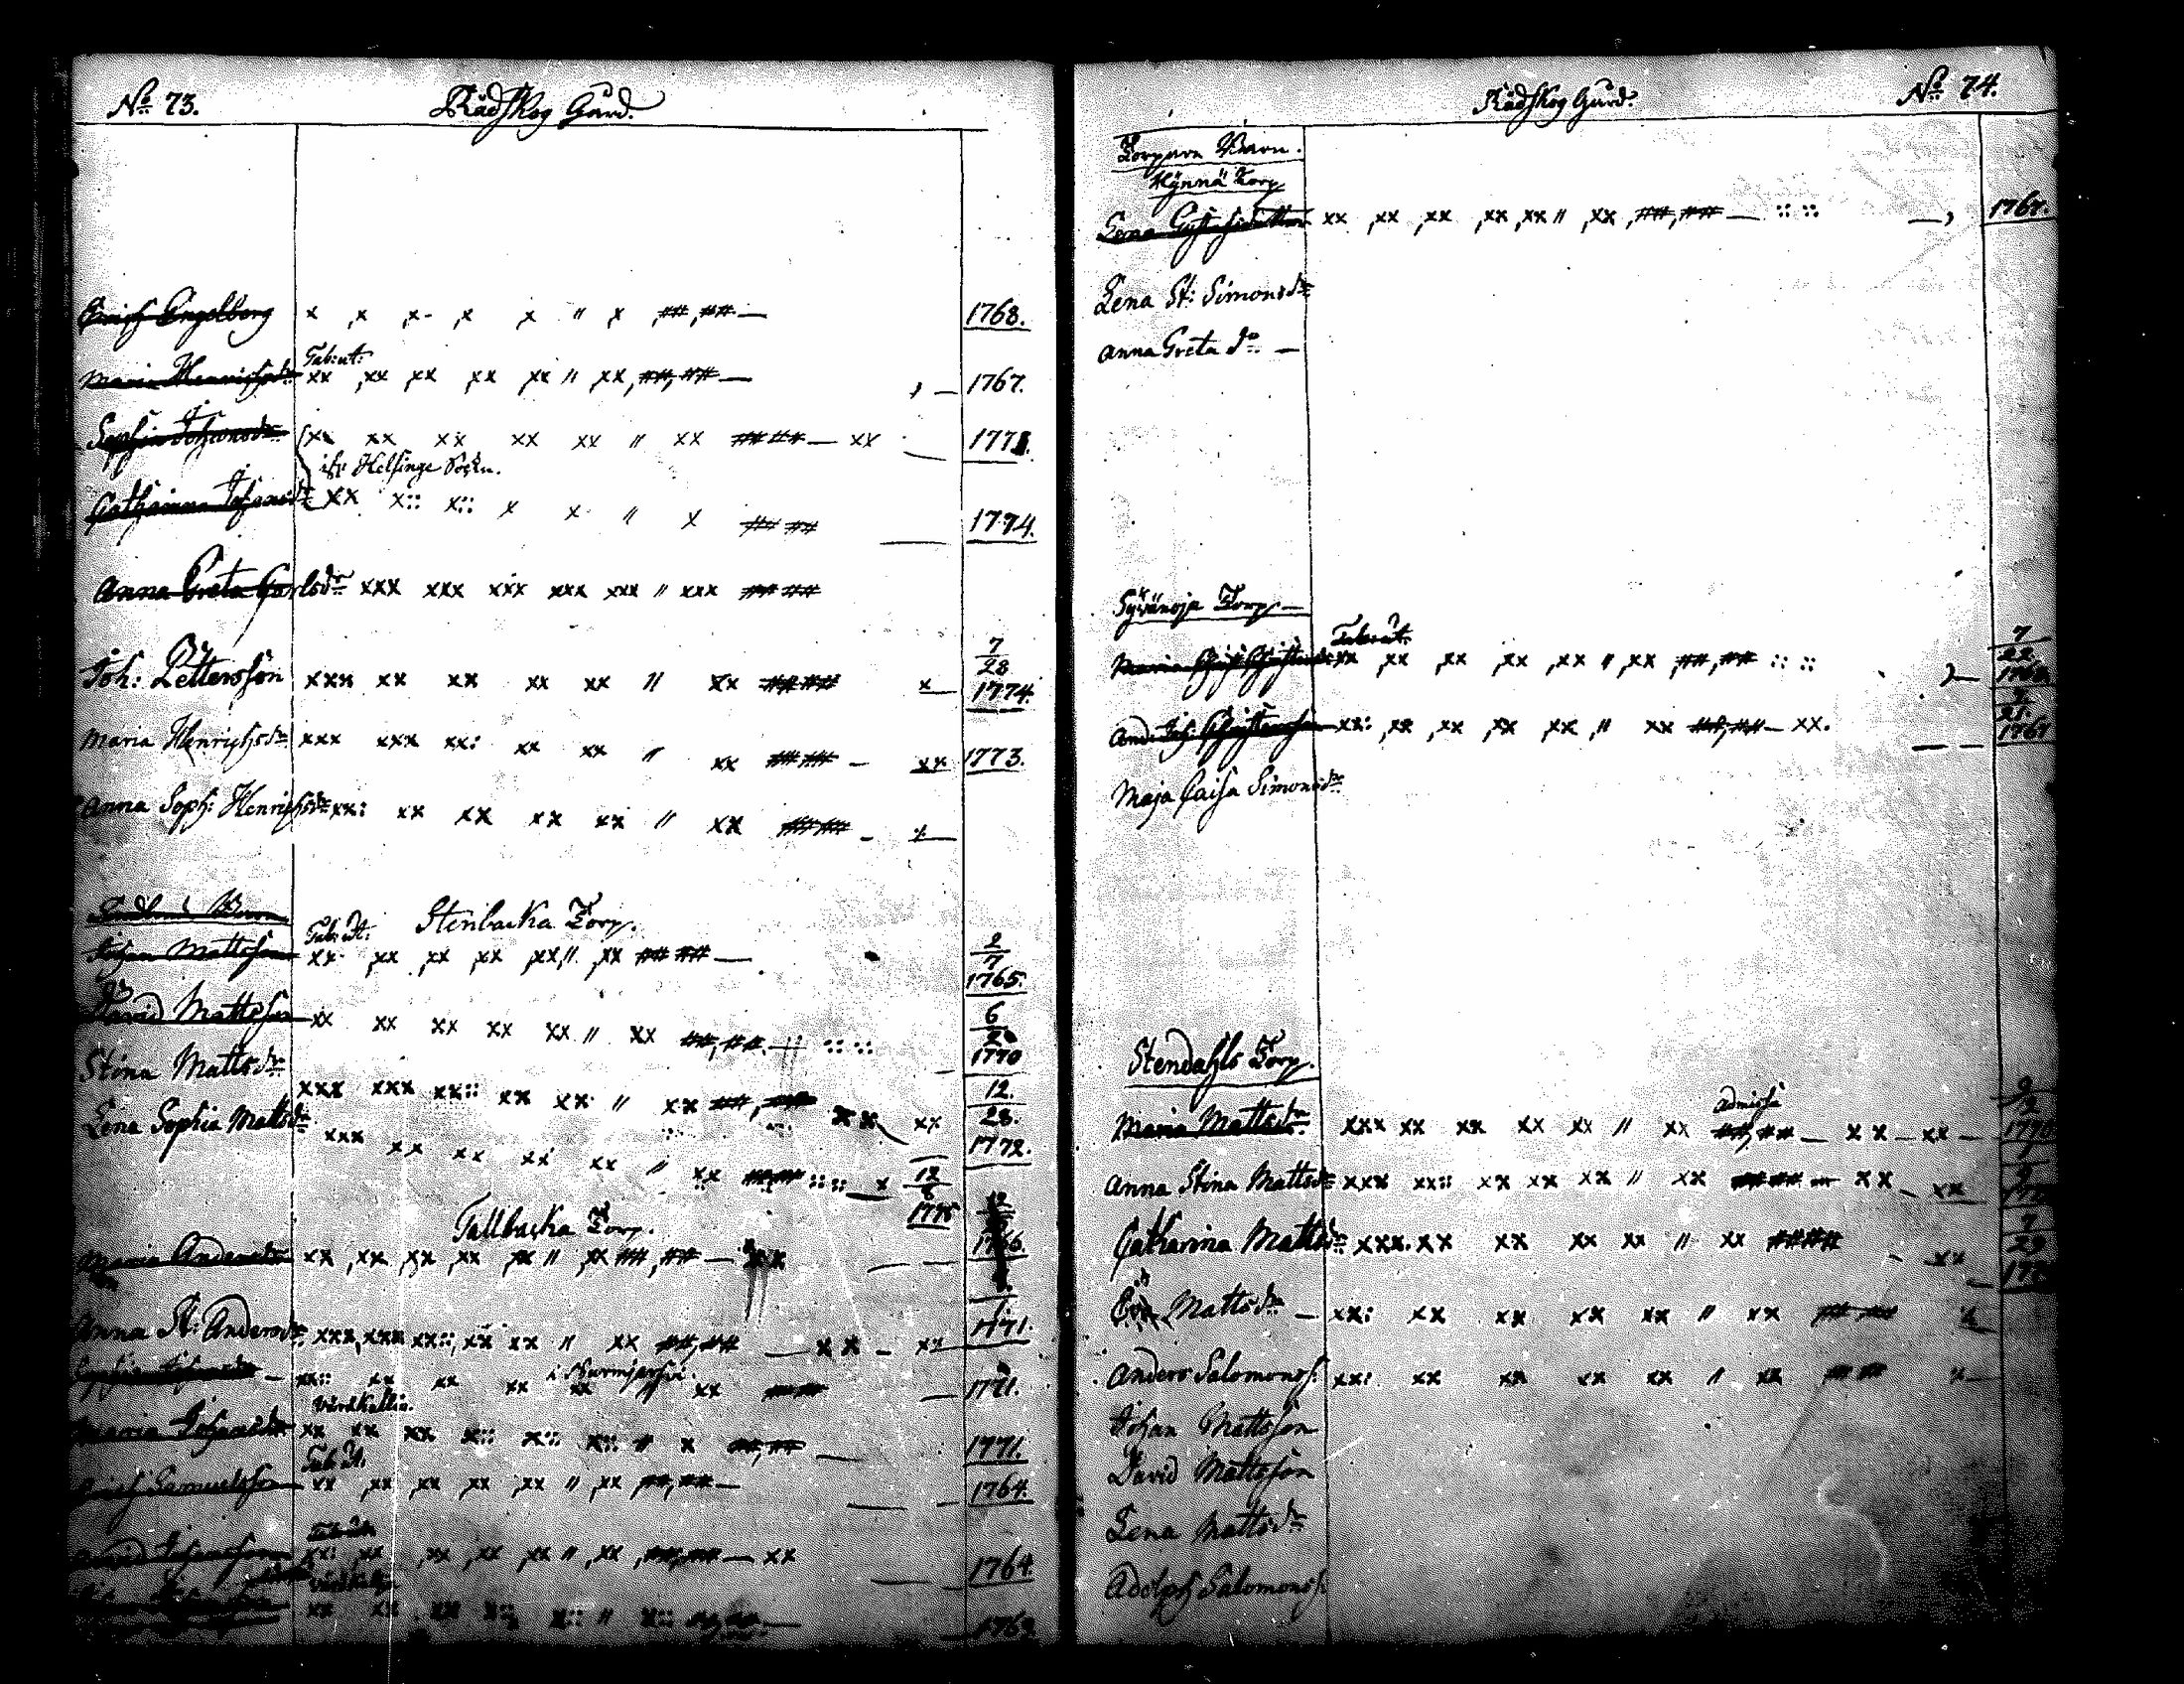 No 73.
Rådskog Gård.
Erich Engelberg x ,x ,x ,x ,x " x ,##,## — 1768.
Tab: ut:
Maria Henrichsdr xx ,xx ,xx ,xx ,xx " ,xx ,##,## — , — 1767.
Sophia Johansdr xx xx xx xx xx " xx ## ## — xx
ifr: Helsinge Sockn.
Catharina Johansdr xx x:: x:: x x " x ## ## — 1774.
Anna Greta Carlsdr xxx xxx xxx xxx xxx " xxx ## ##
Joh: Pettersson xxx xx xx xx xx " xx ## ## x 7/28 1774.
Maria Henrichsdr xxx xxx xx: xx xx " xx ## ## — xx 1773.
Anna Soph: Henrichsdr xx: xx xx xx xx " xx ## ## — x
Stenbacka Torp.
Tab: ut:
Johan Mattsson xx ,xx ,xx ,xx ,xx " ,xx ## ## — 2/7 1765.
David Mattsson xx xx xx xx xx " xx ##,## — :: :: 6/20 1770
Stina Mattsdr xxx xxx xx:: xx xx " xx ##,## xx xx 12/28. 1772.
Lena Sophia Mattsdr xxx xx xx xx xx " xx ## ## :: :: x 12/6 1775
Tallbacka Torp.
Maria Andersdr xx ,xx ,xx ,xx ,xx " ,xx ##,## — xx
Anna St: Andersdr xxx,xxx xx::,xx xx " xx ##,## — xx — xx 1771.
Sophia Johansdr — xx:: xx xx xx xx xx ## ## — 1771.
Maria Johansdr xx xx xx x:: x:: x:: " x ##,## — 1771.
Tab: ut:
Erich Samuelsson xx ,xx ,xx ,xx ,xx " ,xx ##,## — 1764.
David Johansson xx: xx ,xx ,xx ,xx " ,xx ,##,## — xx 1764.
No 74.
Rådskog Gård.
Torpare Barn.
Hynnä Torp
Lena Gustafsdotter xx ,xx ,xx ,xx ,xx " ,xx ,##,## — :: :: — , 1767.
Lena St: Simonsdr
Anna Greta do —
Syvänoja Torp —
And: Joh: Christersson xx: ,xx ,xx ,xx ,xx ," xx ##,## — xx.
Maja Caisa Simonsdr
Stendahls Torp.
admissa
Maria Mattsdr xxx xx xx xx xx " xx ##,## — xx — xx —
Anna Stina Mattsdr xxx xx:: xx xx xx " xx ## ## — xx — xx
Catharina Mattsdr xxx. xx xx xx xx " xx ## ## — xx
Eva Mattsdr — xx: xx xx xx xx " xx ## ## x
Anders Salomonss. xx: xx xx xx xx " xx ## ## x
Johan Mattsson
David Mattsson
Lena Mattsdr
Adolph Salomonss.